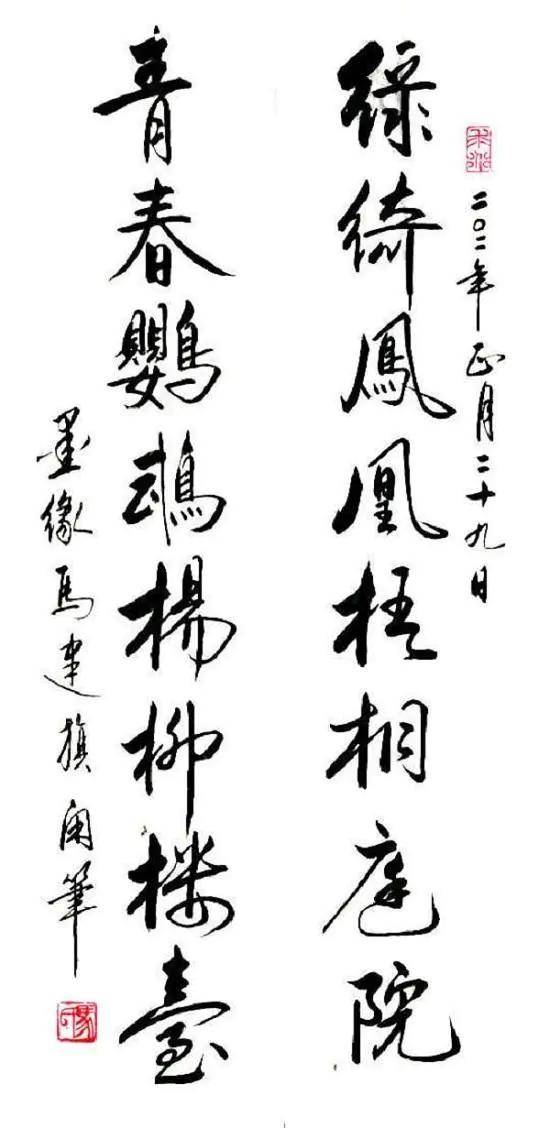 二〇二年正月二十九日
綠綺鳳凰梧桐庭院
青春鸚鵡楊柳樓臺
墨缘馬建旗筆